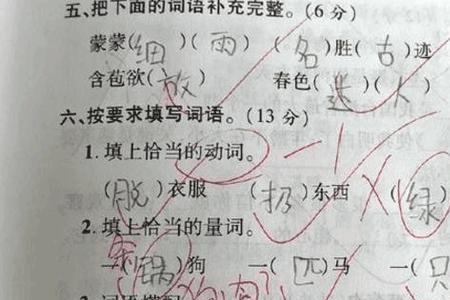 五、把下面的词语补充完整。(6 分)
蒙蒙(细)(雨) (名)胜(古)迹
含苞欲(放) 春色(迷)(人)
六、按要求填写词语。(13 分)
1. 填上恰当的动词。
(脱)衣服 (扔)东西 (绿
2. 填上恰当的量词。
一(锅)狗 一(匹)马 一(只